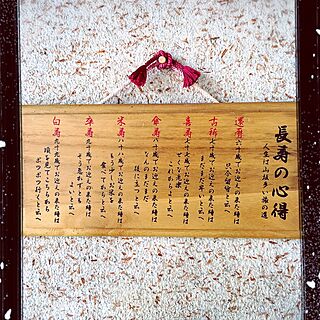 長寿の心得
人生は山坂多い旅の道
還暦 六十才でお迎えの来た時は
只今留守と云へ
古稀 七十才でお迎えの来た時は
まだまだ早いと云へ
喜寿 七十七才でお迎えの来た時は
せくな老楽
これからよと云へ
傘寿 八十才でお迎えの来た時は
なんのまだまだ
役に立つと云へ
米寿 八十八才でお迎えの来た時は
もう少しお米を
食べてからと云へ
卒寿 九十才でお迎えの来た時は
そう急がずとも
よいと云へ
白寿 九十九才でお迎えの来た時は
頃を見てこちらから
ボツボツ行くと云へ